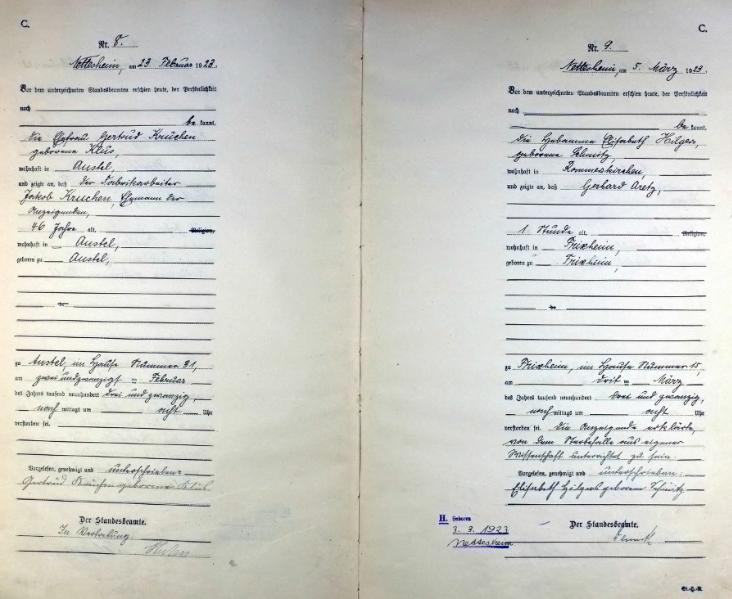 C.
Nr. 8.
Nettesheim, am 23. Februar 1923.
Vor dem unterzeichneten Standesbeamten erschien heute, der Persönlichkeit
nach
be kannt,
die Ehefrau Gertrud Kruchen
geborene Klus,
wohnhaft in Anstel,
und zeigte an, daß der Fabrikarbeiter
Jakob Kruchen, Ehemann der
Anzeigenden,
46 Jahre alt, Religion,
wohnhaft in Anstel,
geboren zu Anstel,
zu Anstel, im Hause Nummer 31,
am zweiundzwanzigst = Februar
des Jahres tausend neunhundert drei und zwanzig,
nach mittags um acht Uhr
verstorben sei.
Vorgelesen, genehmigt und unterschrieben
Gertrud Kruchen geborene Klus
Der Standesbeamte.
In Vertretung
C.
Nr. 9.
Nettesheim, am 5. März 1923.
Vor dem unterzeichneten Standesbeamten erschien heute, der Persönlichkeit
nach
be kannt,
die Hebamme Elisabeth Hilgers,
geborene Schmitz,
wohnhaft in Rommerskirchen,
und zeigte an, daß Gerhard Aretz,
1 Stunde alt, Religion,
wohnhaft in Frixheim,
geboren zu Frixheim,
zu Frixheim, im Hause Nummer 15,
am dritt = März
des Jahres tausend neunhundert drei und zwanzig,
nach mittags um acht Uhr
verstorben sei. Die Anzeigende erklärte,
von dem Sterbefalle aus eigener
Wissenschaft unterrichtet zu sein.
Vorgelesen, genehmigt und unterschrieben:
Elisabeth Hilgers geborene Schmitz
Der Standesbeamte.
H. Geboren
3. 3. 1923
Nettesheim